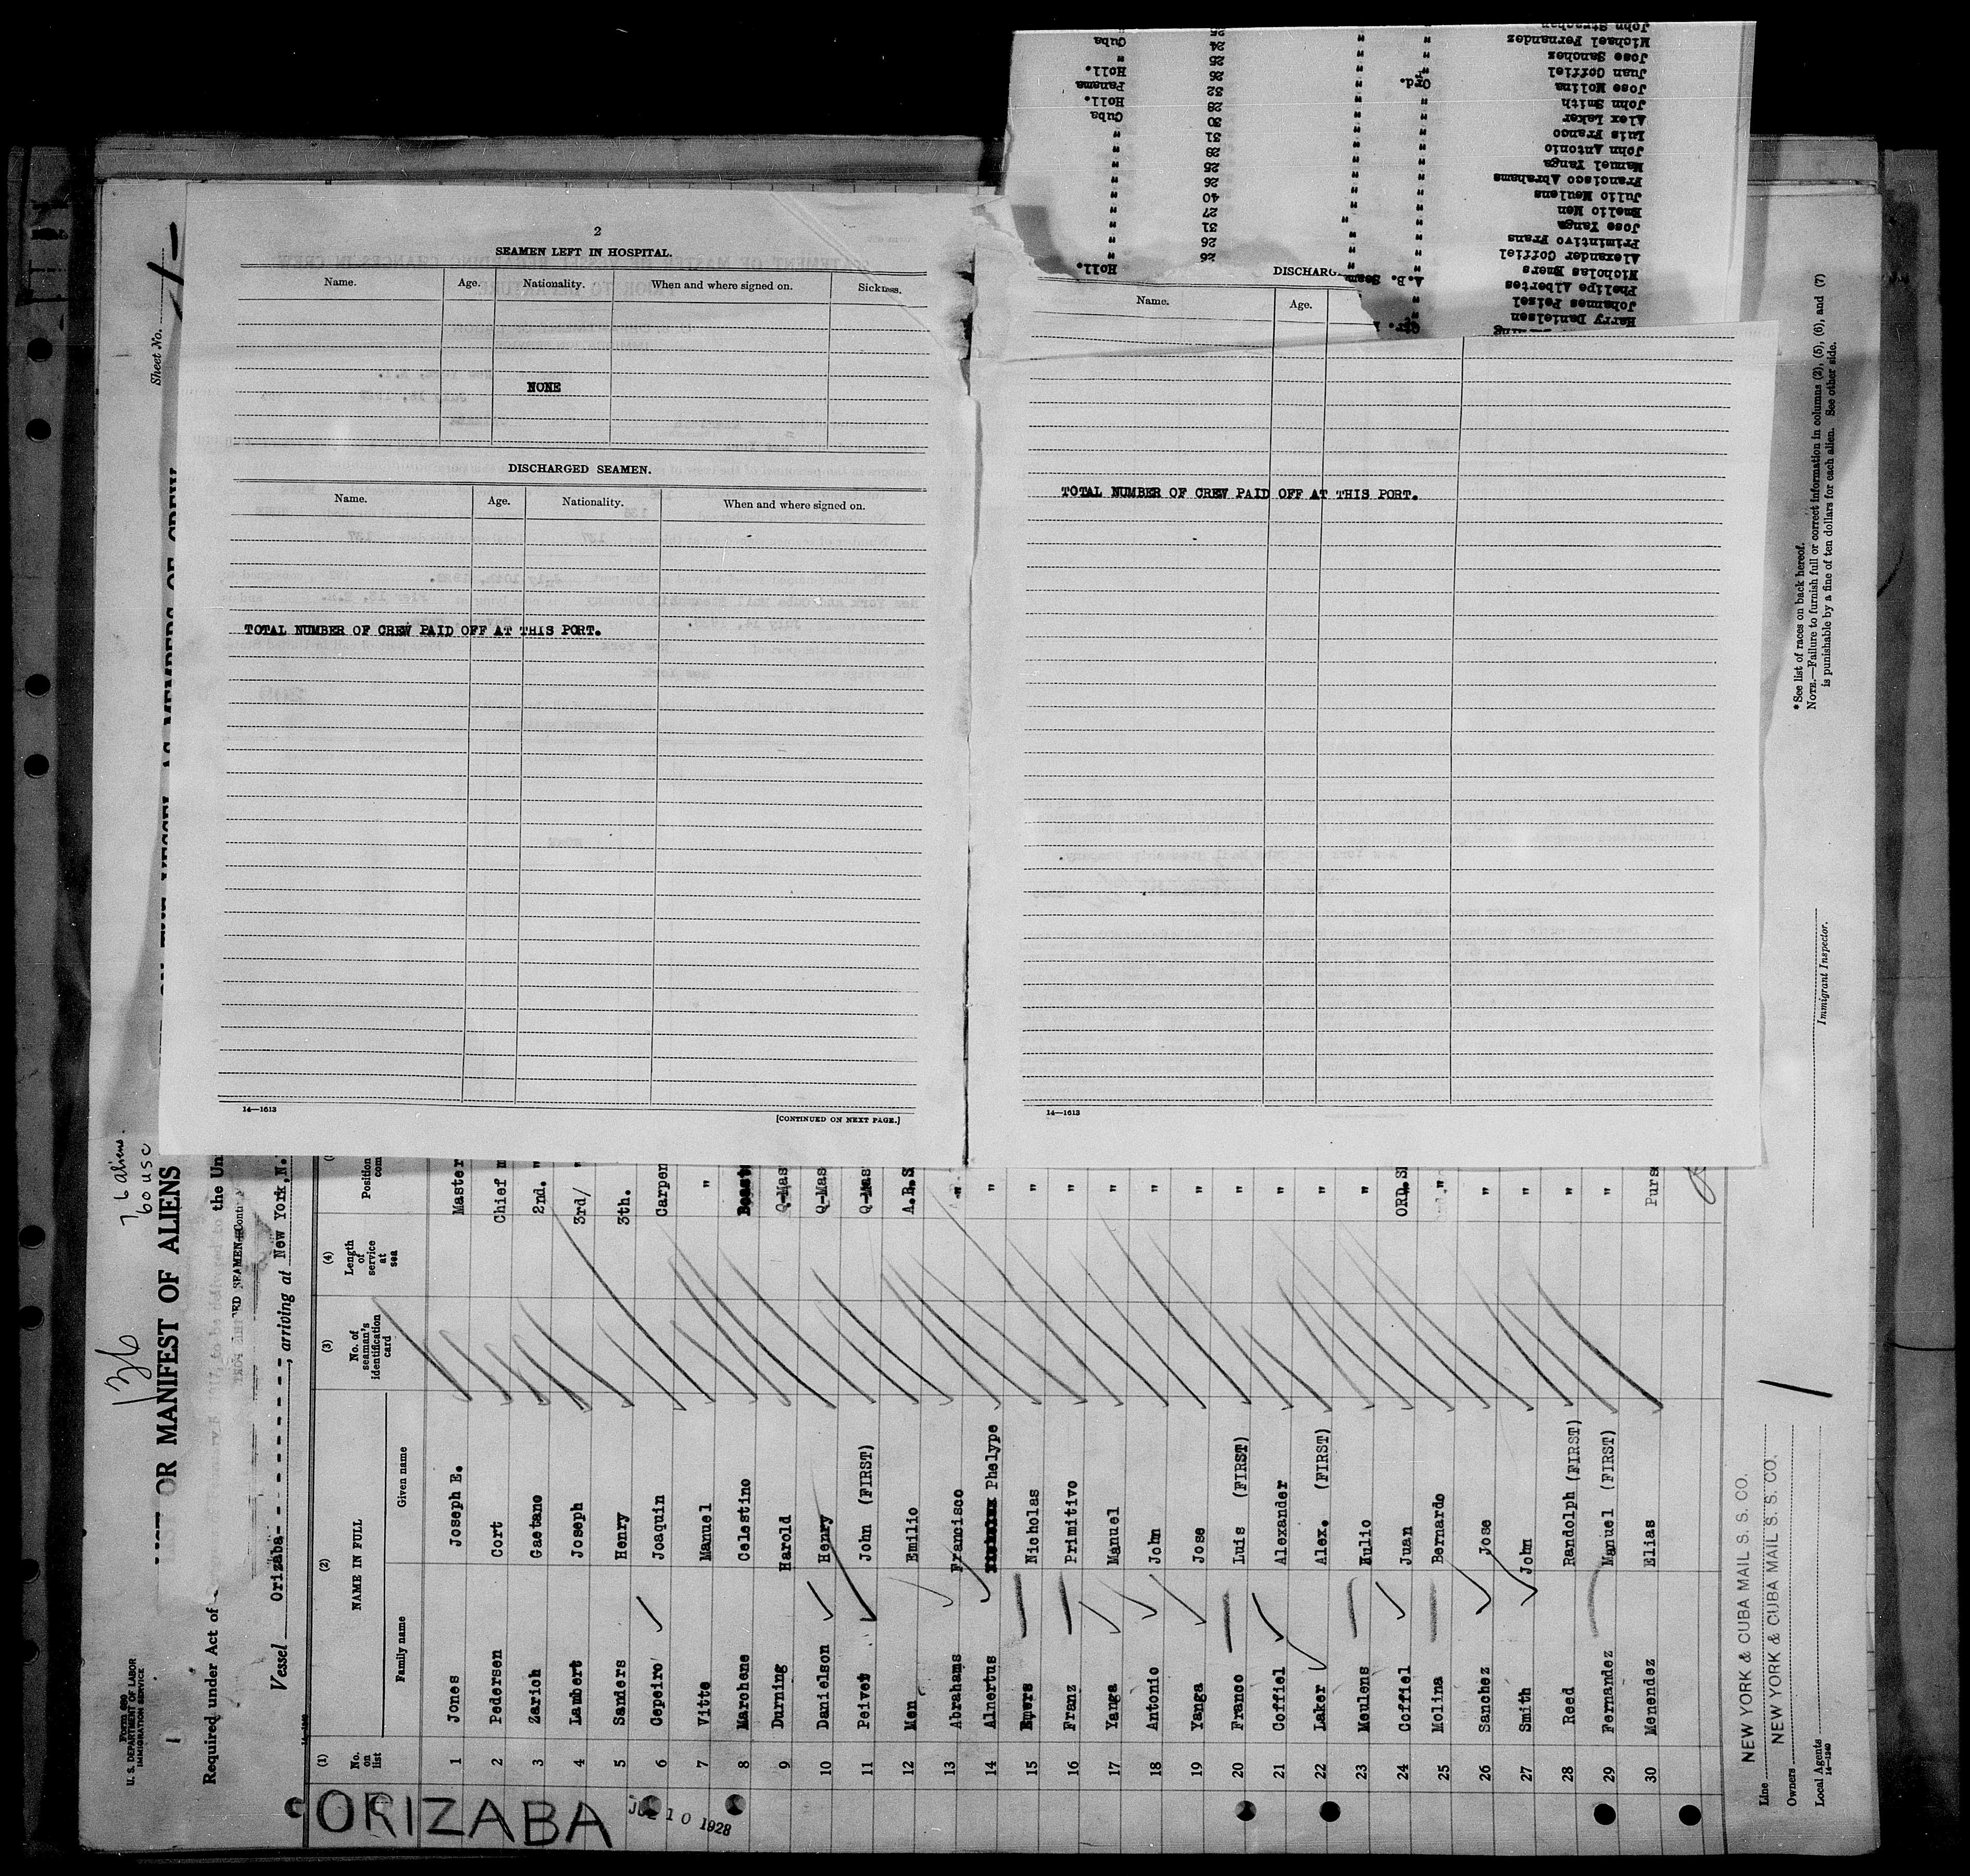 2
SEAMEN LEFT IN HOSPITAL.
Name. Age. Nationality. When and where signed on. Sickness.
NONE
DISCHARGED SEAMEN.
Name. Age. Nationality. When and where signed on.
TOTAL NUMBER OF CREW PAID OFF AT THIS PORT.
14—1613
[CONTINUED ON NEXT PAGE.]
DISCHARG
Name. Age.
TOTAL NUMBER OF CREW PAID OFF AT THIS PORT.
14—1613
Michael Fernandez " " 24 Cuba
Jose Sanchez " " 25 "
Juan Coffiel " " 26 Holl.
Jose Molina Ord. " 32 Panama
John Smith " " 28 Holl.
Alex Laker " " 30 Cuba
Luis Franco " " 31 "
John Antonio " " 28 "
Manuel Yanga " " 25 "
Francisco Abrahams " " 26 "
Julio Meulens " " 40 "
Emelio Men " " 27 "
Jose Yanga " " 31 "
Primintivo Frans " " 26 "
Alexander Coffiel " " 26 "
Nicholas Emers A.B. Seam Holl.
Phelipe Albertos
Johannes Peizel
Harry Danielsen
Sheet No. 1
Form 680
U. S. DEPARTMENT OF LABOR
IMMIGRATION SERVICE
136
76 aliens.
60 USC
OR MANIFEST OF ALIENS
Required under Act of
the Un
Vessel Orizaba, arriving at New York, N.
(1) (2) (3) (4)
No. on list
NAME IN FULL
Family name Given name
No. of seaman's identification card
Length of service at sea
Position
com
1 Jones Joseph E. Master
2 Pedersen Cort Chief m
3 Zarich Gaetano 2nd. "
4 Lambert Joseph 3rd/ "
5 Sanders Henry 3th.
6 Cepeiro Joaquin Carpen
7 Vitte Manuel "
8 Marchene Celestino
9 Durning Harold Q-Mas
10 Danielson Henry Q-Mas
11 Peivet John (FIRST) Q-Mas
12 Men Emilio A.B.S
13 Abrahams Francisco "
14 Alnertus Phelype "
15 Emers Nicholas "
16 Franz Primitivo "
17 Yanga Manuel "
18 Antonio John "
19 Yanga Jose "
20 Franco Luis (FIRST) "
21 Coffiel Alexander "
22 Laker Alex. (FIRST) "
23 Meulens Hulio "
24 Coffiel Juan ORD.SE
25 Molina Bernardo "
26 Sanchez Jose "
27 Smith John "
28 Reed Randolph (FIRST) "
29 Fernandez Manuel (FIRST) "
30 Menendez Elias Purs
Line NEW YORK & CUBA MAIL S. S. CO.
Owners NEW YORK & CUBA MAIL S. S. CO.
Local Agents
14—1240
Immigrant Inspector.
*See list of races on back hereof.
NOTE.—Failure to furnish full or correct information in columns (2), (5), (6), and (7)
is punishable by a fine of ten dollars for each alien. See other side.
ORIZABA
JUL 10 1928